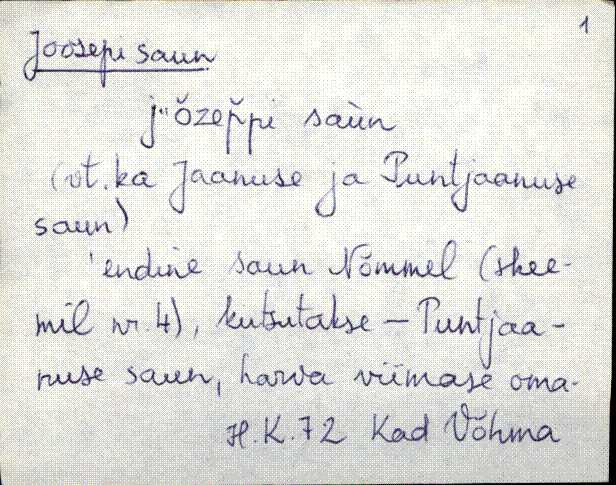 1
Joosepi saun
j·ŏzep̆pi saùn
(vt. ka Jaanuse ja Puntjaanuse
saun)
'endine saun Nõmmel (skee-
mil nr. 4), kutsutakse – Puntjaa-
nuse saun, harva viimase oma-
H.K. 72 Kad Võhma